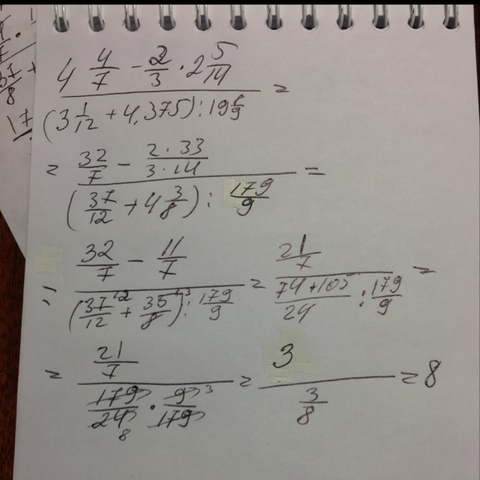 (4 4/7 - 2/3 · 2 5/14) / ((3 1/12 + 4,375) : 19 8/9) =
= (32/7 - (2 · 33)/(3 · 14)) / ((37/12 + 4 3/8) : 179/9) =
= (32/7 - 11/7) / ((37/12 + 35/8) : 179/9) = (21/7) / ((74 + 105)/24 : 179/9) =
= (21/7) / (179/24 · 9/179) = 3 / (3/8) = 8